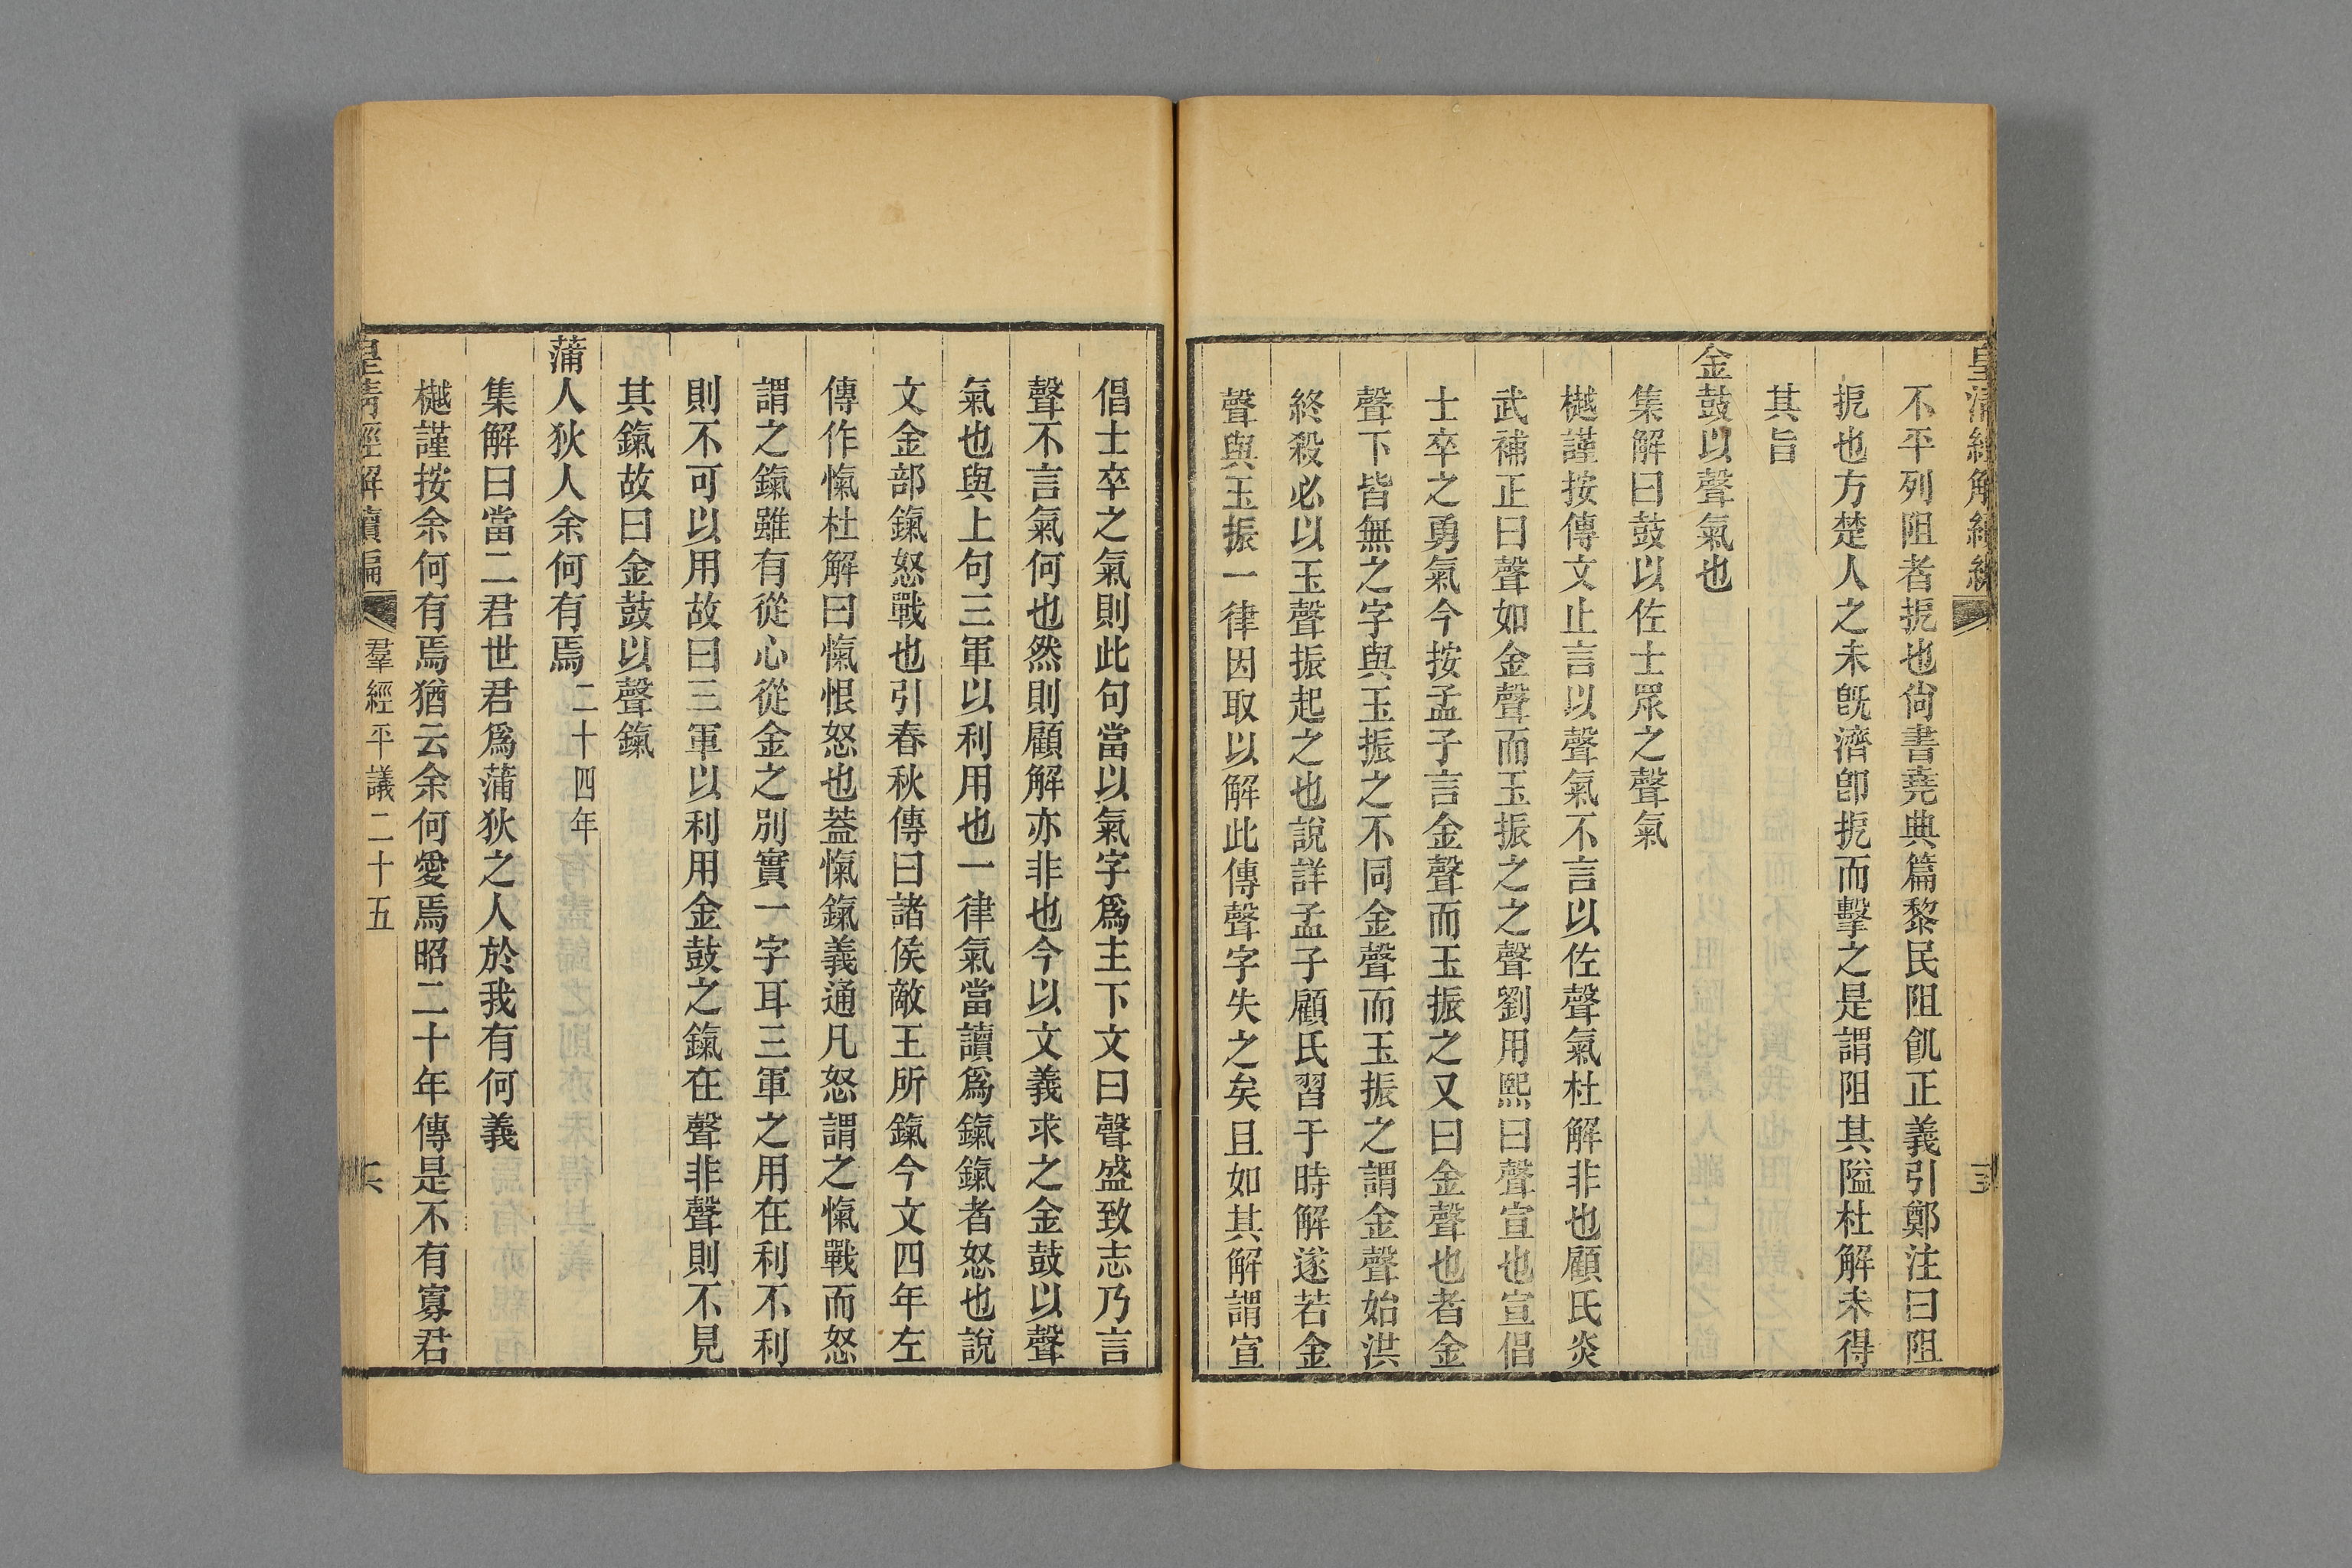 皇清經解續編
不平列阻者扼也尙書堯典篇黎民阻飢正義引鄭注曰阻
扼也方楚人之未旣濟卽扼而擊之是謂阻其隘杜解未得
其旨
金鼓以聲氣也
集解曰鼓以佐士眾之聲氣
樾謹按傳文止言以聲氣不言以佐聲氣杜解非也顧氏炎
武補正曰聲如金聲而玉振之之聲劉用熙曰聲宣也宣倡
士卒之勇氣今按孟子言金聲而玉振之又曰金聲也者金
聲下皆無之字與玉振之不同金聲而玉振之謂金聲始洪
終殺必以玉聲振起之也說詳孟子顧氏習于時解遂若金
聲與玉振一律因取以解此傳聲字失之矣且如其解謂宣
倡士卒之氣則此句當以氣字爲主下文曰聲盛致志乃言
聲不言氣何也然則顧解亦非也今以文義求之金鼓以聲
氣也與上句三軍以利用也一律氣當讀爲鎎鎎者怒也說
文金部鎎怒戰也引春秋傳曰諸侯敵王所鎎今文四年左
傳作愾杜解曰愾恨怒也蓋愾鎎義通凡怒謂之愾戰而怒
謂之鎎雖有從心從金之別實一字耳三軍之用在利不利
則不可以用故曰三軍以利用金鼓之鎎在聲非聲則不見
其鎎故曰金鼓以聲鎎
蒲人狄人余何有焉 二十四年
集解曰當二君世君爲蒲狄之人於我有何義
樾謹按余何有焉猶云余何愛焉昭二十年傳是不有寡君
皇清經解續編 羣經平議二十五